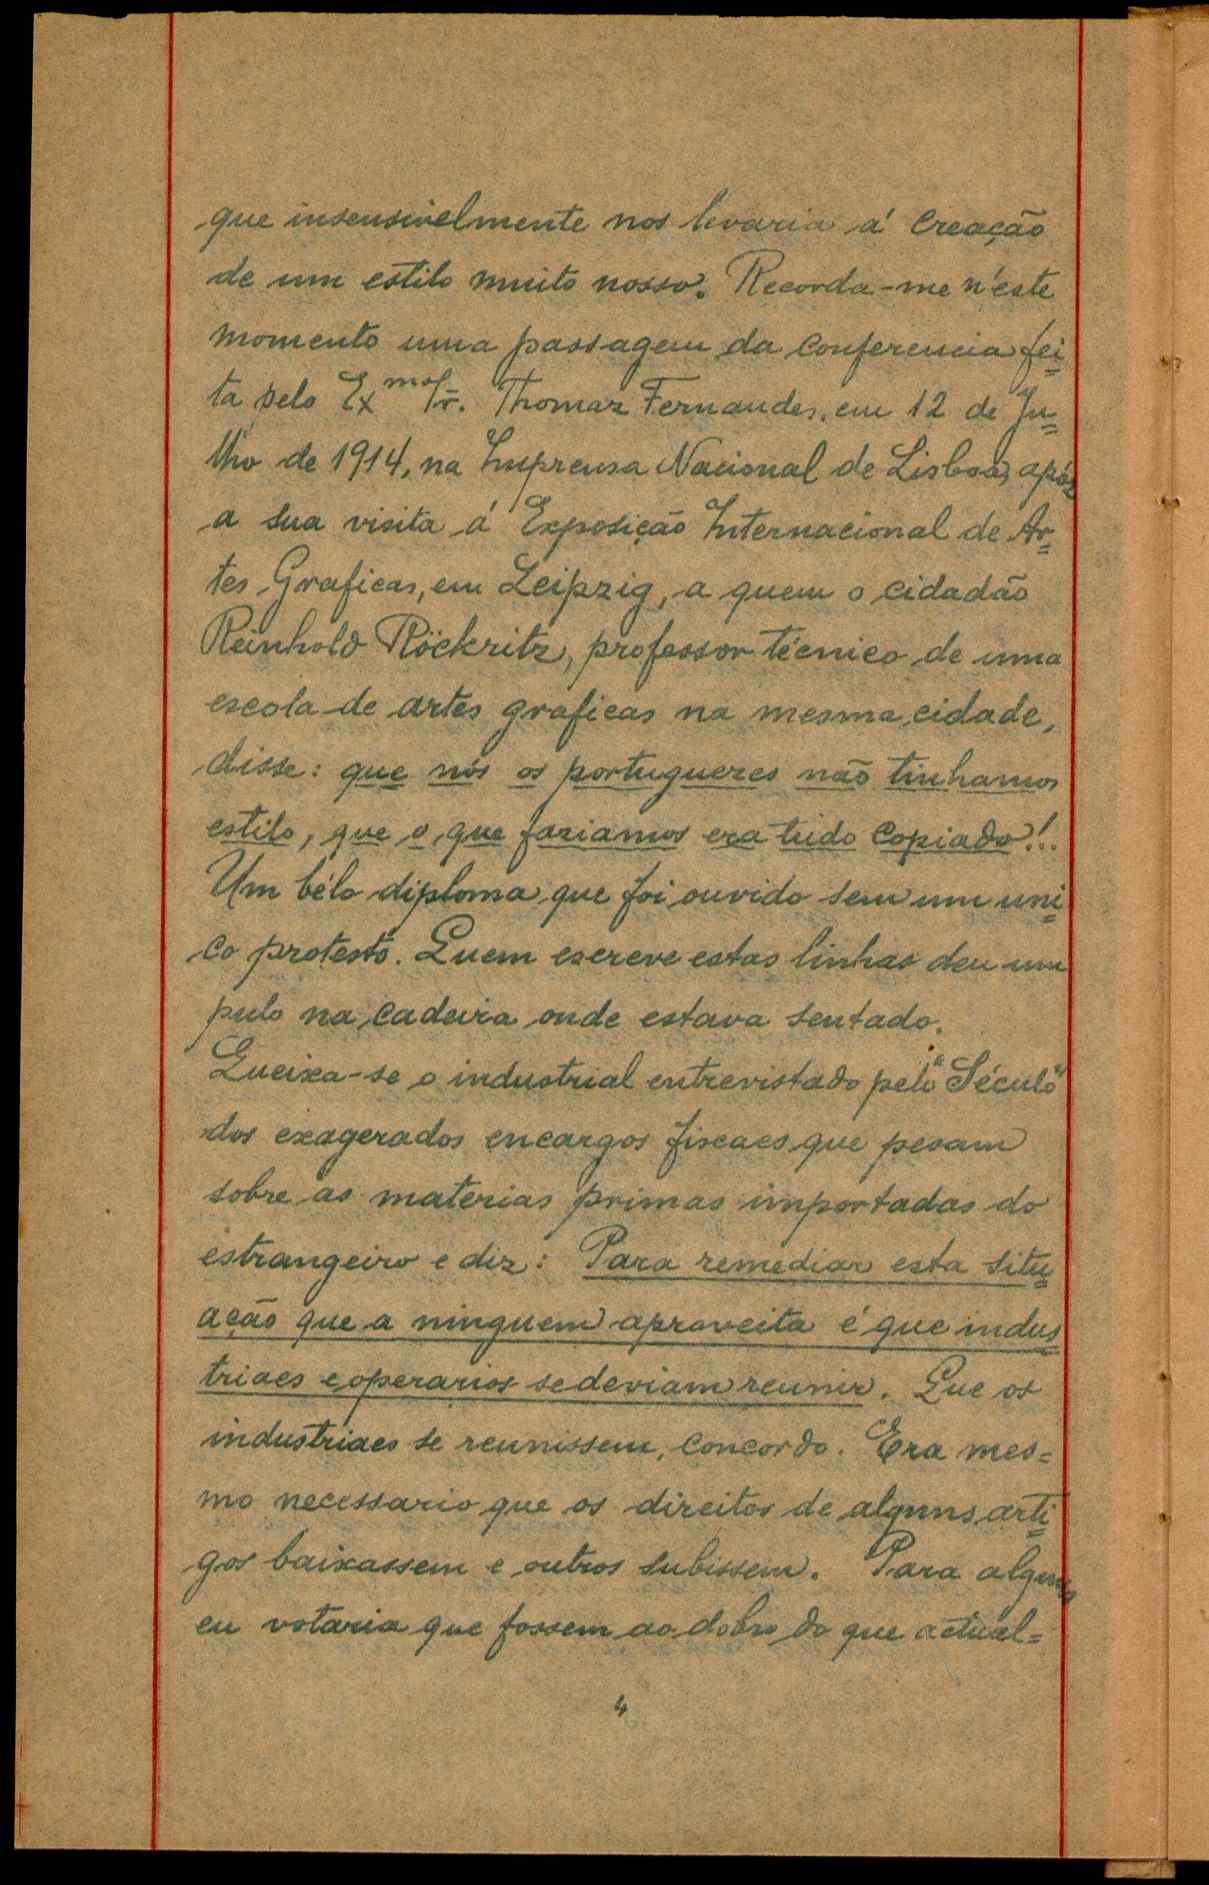 que insensivelmente nos levaria á creação
de um estilo muito nosso. Recorda-me n'éste
momento uma passagem da conferencia fei=
ta pelo Exmo Sr. Thomaz Fernandes, em 12 de Ju=
lho de 1914, na Imprensa Nacional de Lisboa, após
a sua visita á Exposição Internacional de Ar=
tes Graficas, em Leipzig, a quem o cidadão
Reinhold Röckritz, professor técnico de uma
escola de artes graficas na mesma cidade,
disse: que nós os portuguezes não tinhamos
estilo, que o que faziamos era tudo copiado!..
Um bélo diploma que foi ouvido sem um uni=
co protesto. Quem escreve estas linhas deu um
pulo na cadeira onde estava sentado.
Queixa-se o industrial entrevistado pelo "Século"
dos exagerados encargos fiscaes que pesam
sobre as materias primas importadas do
estrangeiro e diz: Para remediar esta situ=
ação que a ninguem aproveita é que indus=
triaes e operarios se deviam reunir. Que os
industriaes se reunissem, concordo. Era mes=
mo necessario que os direitos de alguns arti=
gos baixassem e outros subissem. Para alguns
eu votaria que fossem ao dobro do que actual=
4